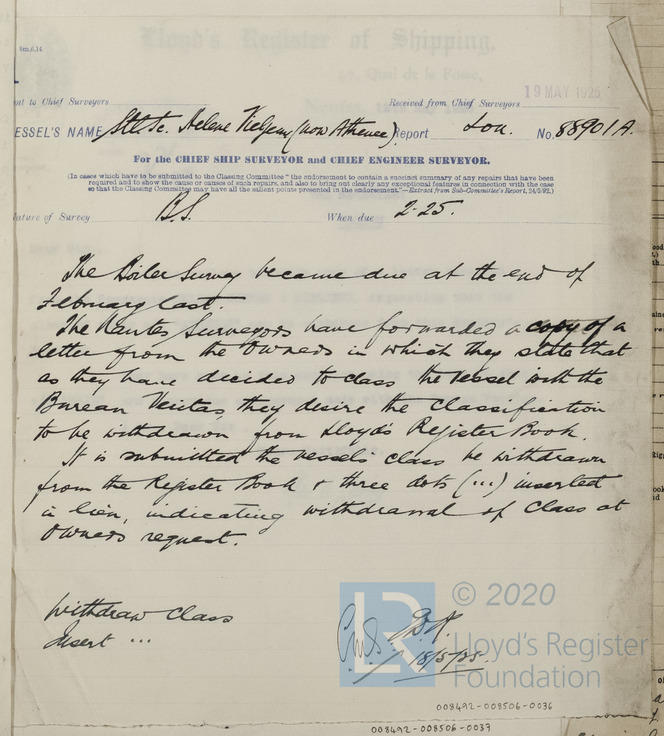 Lloyd's Register of Shipping,
Quai de la Fosse,
19 MAY 1925
nt to Chief Surveyors
Received from Chief Surveyors
ESSEL'S NAME Stl Sc. Helene (now Athenee). Report Lon. No. 88901A.
For the CHIEF SHIP SURVEYOR and CHIEF ENGINEER SURVEYOR.
(In cases which have to be submitted to the Classing Committee "the endorsement to contain a succinct summary of any repairs that have been
required and to show the cause or causes of such repairs, and also to bring out clearly any exceptional features in connection with the case
so that the Classing Committee may have all the salient points presented in the endorsement."—Extract from Sub-Committee's Report, 24/3/92.)
Nature of Survey B.S. When due 2-25.
The Boiler Survey became due at the end of
February last.
The Nantes Surveyors have forwarded a copy of a
letter from the Owners in which they state that
as they have decided to class the vessel with the
Bureau Veritas, they desire the classification
to be withdrawn from Lloyd's Register Book.
It is submitted the vessel's class be withdrawn
from the Register Book & three dots (...) inserted
in lieu, indicating withdrawal of Class at
Owners request.
Withdraw Class
Insert ...
18/5/25.
LR
© 2020
Lloyd's Register
Foundation
008492-008506-0036
008492-008506-0037